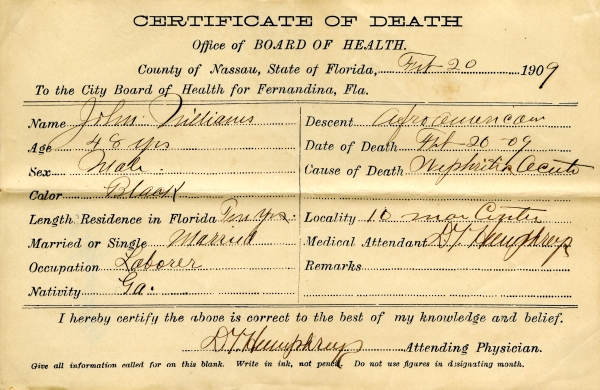 CERTIFICATE OF DEATH
Office of BOARD OF HEALTH.
County of Nassau, State of Florida, Feb 20 1909
To the City Board of Health for Fernandina, Fla.
Name John Williams
Age 48 yrs
Sex Male
Color Black
Length Residence in Florida Ten yrs.
Married or Single Married
Occupation Laborer
Nativity Ga.
Descent Afroamerican
Date of Death Feb-20-09
Cause of Death Nephritis Acute
Locality 10
Medical Attendant D.T. Humphreys
Remarks
I hereby certify the above is correct to the best of my knowledge and belief.
D.T. Humphreys Attending Physician.
Give all information called for on this blank. Write in ink, not pencil. Do not use figures in designating month.